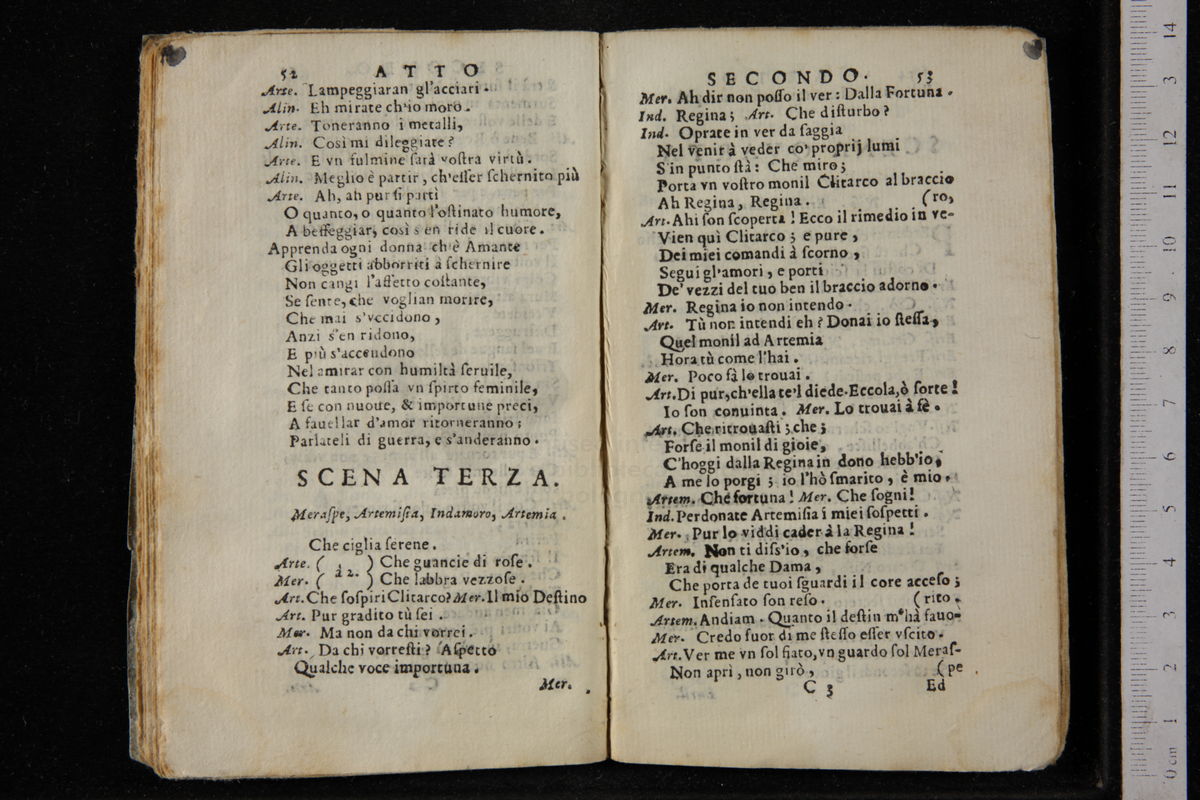 52 ATTO
Arte. Lampeggiaran gl'acciari.
Alin. Eh mirate ch'io moro.
Arte. Toneranno i metalli,
Alin. Così mi dileggiate?
Arte. E vn fulmine sarà vostra virtù.
Alin. Meglio è partir, ch'esser schernito più
Arte. Ah, ah pur sì partì
O quanto, o quanto l'ostinato humore,
A beffeggiar, così s'en ride il cuore.
Apprenda ogni donna ch'è Amante
Gli oggetti abborriti à schernire
Non cangi l'affetto costante,
Se sente, che voglian morire,
Che mai s'vccidono,
Anzi s'en ridono,
E più s'accendono
Nel amirar con humiltà seruile,
Che tanto possa vn spirto feminile,
E se con nuoue, & importune preci,
A fauellar d'amor ritorneranno;
Parlateli di guerra, e s'anderanno.
SCENA TERZA.
Meraspe, Artemisia, Indamoro, Artemia.
Che ciglia serene.
Arte. ( à 2. ) Che guancie di rose.
Mer. ( ) Che labbra vezzose.
Art. Che sospiri Clitarco? Mer. Il mio Destino
Art. Pur gradito tù sei.
Mer. Ma non da chi vorrei.
Art. Da chi vorresti? Aspetto
Qualche voce importuna.
Mer.
SECONDO. 53
Mer. Ah dir non posso il ver: Dalla Fortuna.
Ind. Regina; Art. Che disturbo?
Ind. Oprate in ver da saggia
Nel venir à veder co' proprij lumi
S'in punto stà: Che miro;
Porta vn vostro monil Clitarco al braccio
Ah Regina, Regina. (ro,
Art. Ahi son scoperta! Ecco il rimedio in ve-
Vien quì Clitarco; e pure,
Dei miei comandi à scorno,
Segui gl'amori, e porti
De' vezzi del tuo ben il braccio adorno.
Mer. Regina io non intendo.
Art. Tù non intendi eh? Donai io stessa,
Quel monil ad Artemia
Hora tù come l'hai.
Mer. Poco fà lo trouai.
Art. Di pur, ch'ella te'l diede. Eccola, ò sorte!
Io son conuinta. Mer. Lo trouai à fè.
Art. Che ritrouasti; che;
Forse il monil di gioie,
C'hoggi dalla Regina in dono hebb'io,
A me lo porgi; io l'hò smarito, è mio.
Artem. Che fortuna! Mer. Che sogni!
Ind. Perdonate Artemisia i miei sospetti.
Mer. Pur lo viddi cader à la Regina!
Artem. Non ti diss'io, che forse
Era di qualche Dama,
Che porta de tuoi sguardi il core acceso;
Mer. Insensato son reso. (rito.
Artem. Andiam. Quanto il destin m'hà fauo-
Mer. Credo fuor di me stesso esser vscito.
Art. Ver me vn sol fiato, vn guardo sol Meras-
Non aprì, non girò, (pe
C 3 Ed
0 cm 1 2 3 4 5 6 7 8 9 10 11 12 3 14